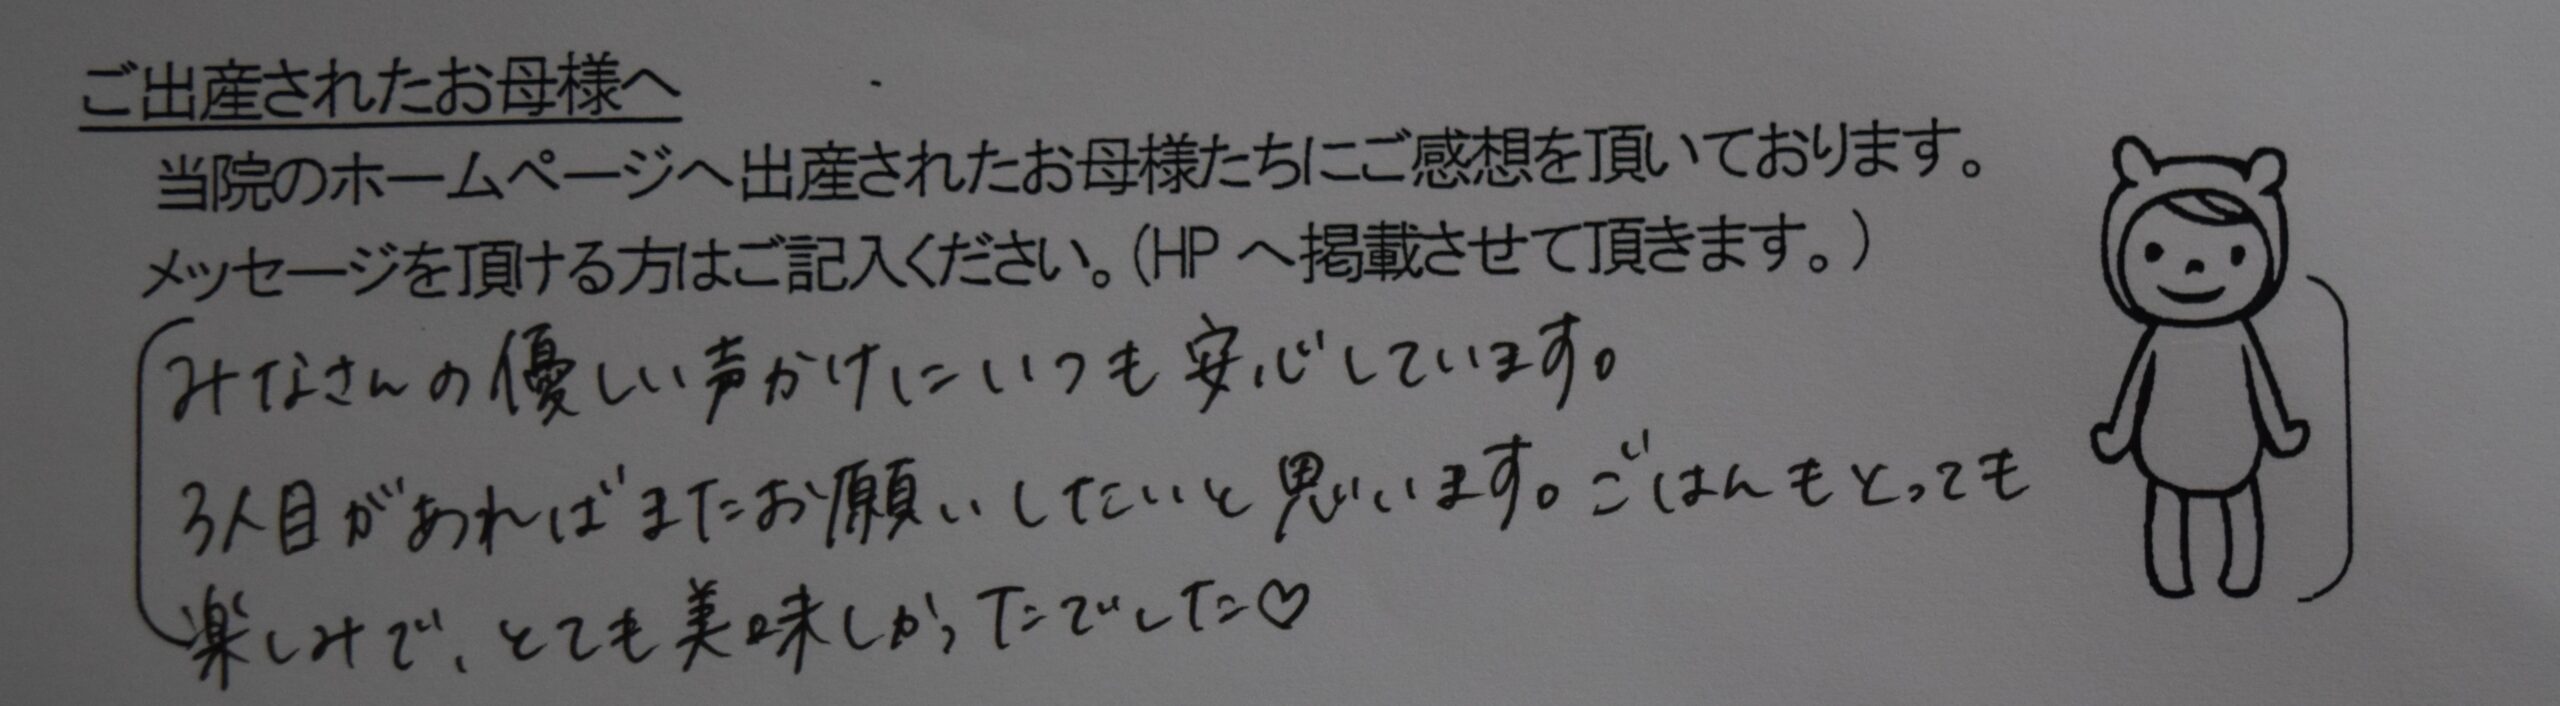 ご出産されたお母様へ
当院のホームページへ出産されたお母様たちにご感想を頂いております。
メッセージを頂ける方はご記入ください。(HPへ掲載させて頂きます。)
みなさんの優しい声かけにいつも安心しています。
3人目があればまたお願いしたいと思います。ごはんもとっても
楽しみで、とても美味しかったでした♡